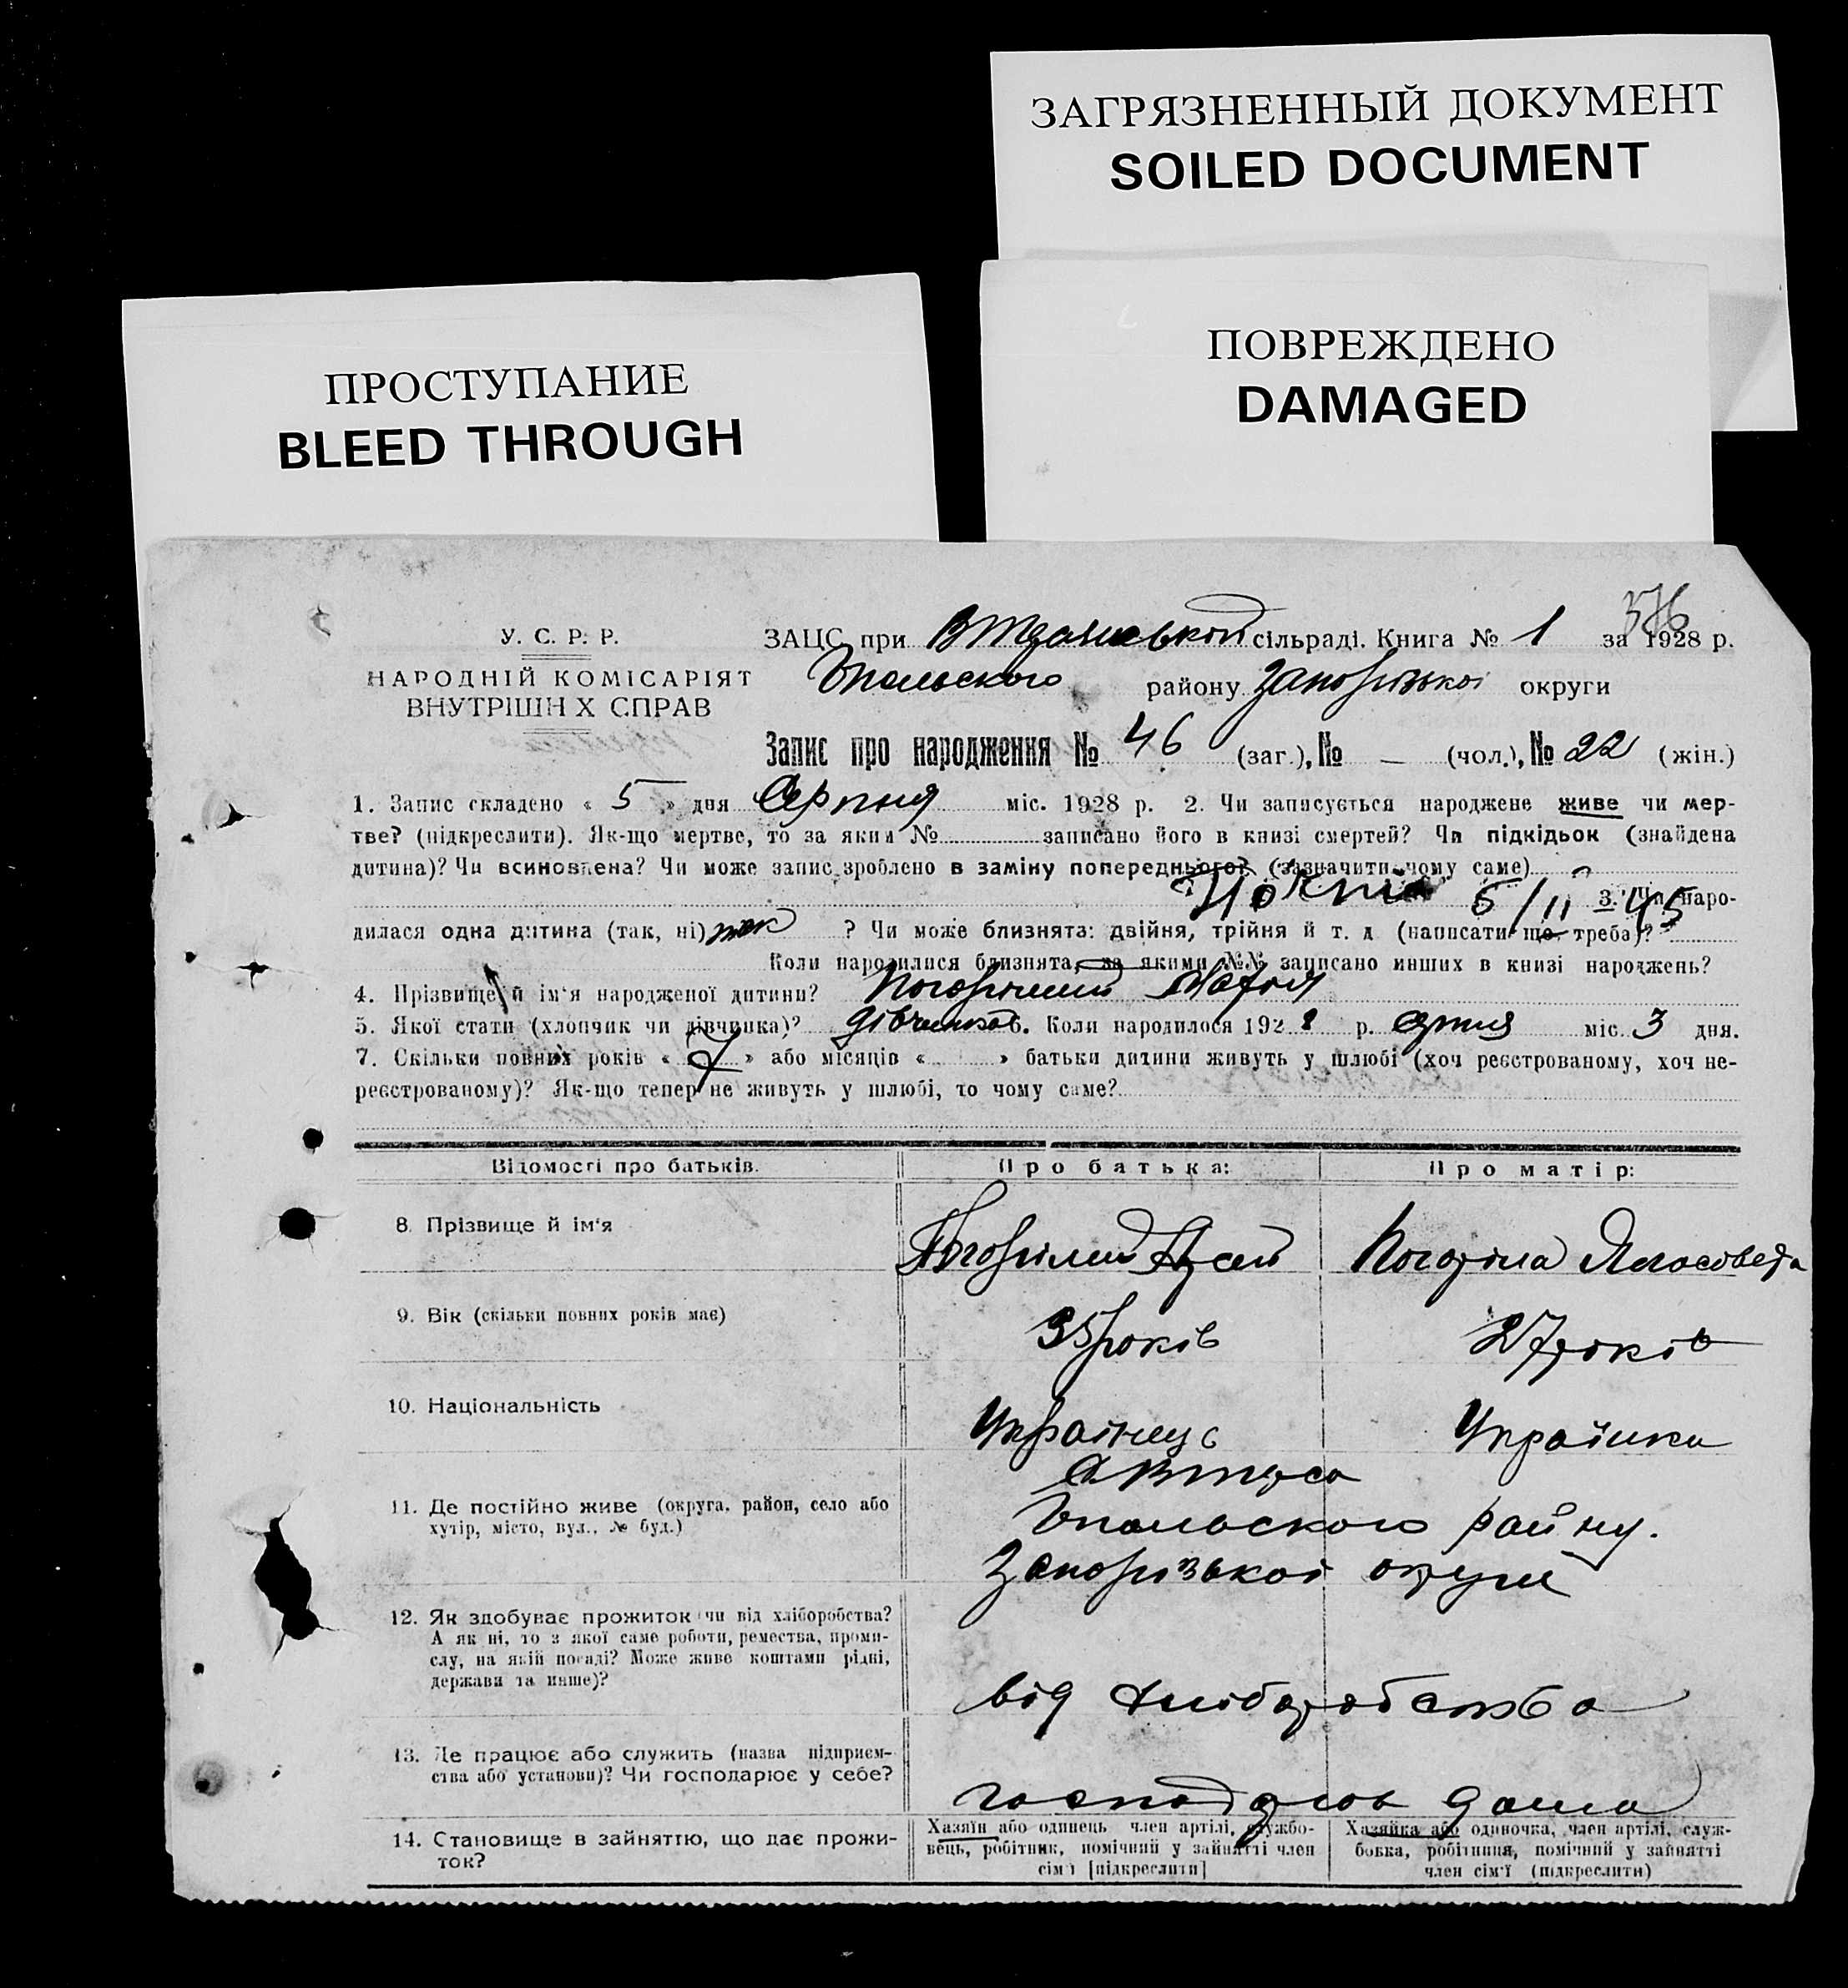 ЗАГРЯЗНЕННЫЙ ДОКУМЕНТ
SOILED DOCUMENT
ПРОСТУПАНИЕ
BLEED THROUGH
ПОВРЕЖДЕНО
DAMAGED
376
У. С. Р. Р.
НАРОДНІЙ КОМІСАРІЯТ
ВНУТРІШНІХ СПРАВ
ЗАЦС при сільраді. Книга № 1 за 1928 р.
району Запорізької округи
Запис про народження № 46 (заг.), № — (чол.), № 22 (жін.)
1. Запис складено « 5 » дня Серпня міс. 1928 р. 2. Чи записується народжене живе чи мер-
тве? (підкреслити). Як-що мертве, то за яким № записано його в книзі смертей? Чи підкідьок (знайдена
дитина)? Чи всиновлена? Чи може запис зроблено в заміну попереднього? (зазначити чому саме)
3. Чи наро-
дилася одна дитина (так, ні) так ? Чи може близнята: двійня, трійня й т. д (написати що треба)?
Коли народилися близнята, за якими №№ записано инших в книзі народжень?
4. Прізвище й ім'я народженої дитини? Погорілий
5. Якої стати (хлопчик чи дівчинка)? дівчинка 6. Коли народилося 1928 р. міс. 3 дня.
7. Скільки повних років « 7 » або місяців « » батьки дитини живуть у шлюбі (хоч реєстрованому, хоч не-
реєстрованому)? Як-що тепер не живуть у шлюбі, то чому саме?
Відомості про батьків. Про батька: Про матір:
8. Прізвище й ім'я Погорілий Погоріла
9. Вік (скільки повних років має) 35 років 27 років
10. Національність Українець Українка
11. Де постійно живе (округа, район, село або
хутір, місто, вул., № буд.)
району.
Запорізької округи
12. Як здобуває прожиток чи від хліборобства?
А як ні, то з якої саме роботи, ремества, проми-
слу, на якій посаді? Може живе коштами рідні,
держави та инше)?
від хліборобства
13. Де працює або служить (назва підприєм-
ства або установи)? Чи господарює у себе?
дома
14. Становище в зайняттю, що дає прожи-
ток?
Хазяїн або одинець член артілі, службо-
вець, робітник, помічний у зайнятті член
сім'ї [підкреслити]
Хазяйка або одиночка, член артілі, служ-
бовка, робітниця, помічний у зайнятті
член сім'ї (підкреслити)